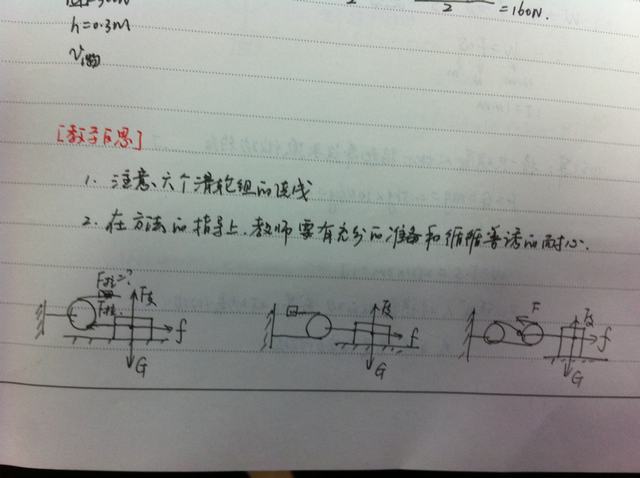 2 =160N.
h=0.3m
V物
[教学反思]
1. 注意、六个滑轮组的连线
2. 在方法的指导上、教师要有充分的准备和循循善诱的耐心.
F拉=? F支 F支 F F支
f f f
G G G